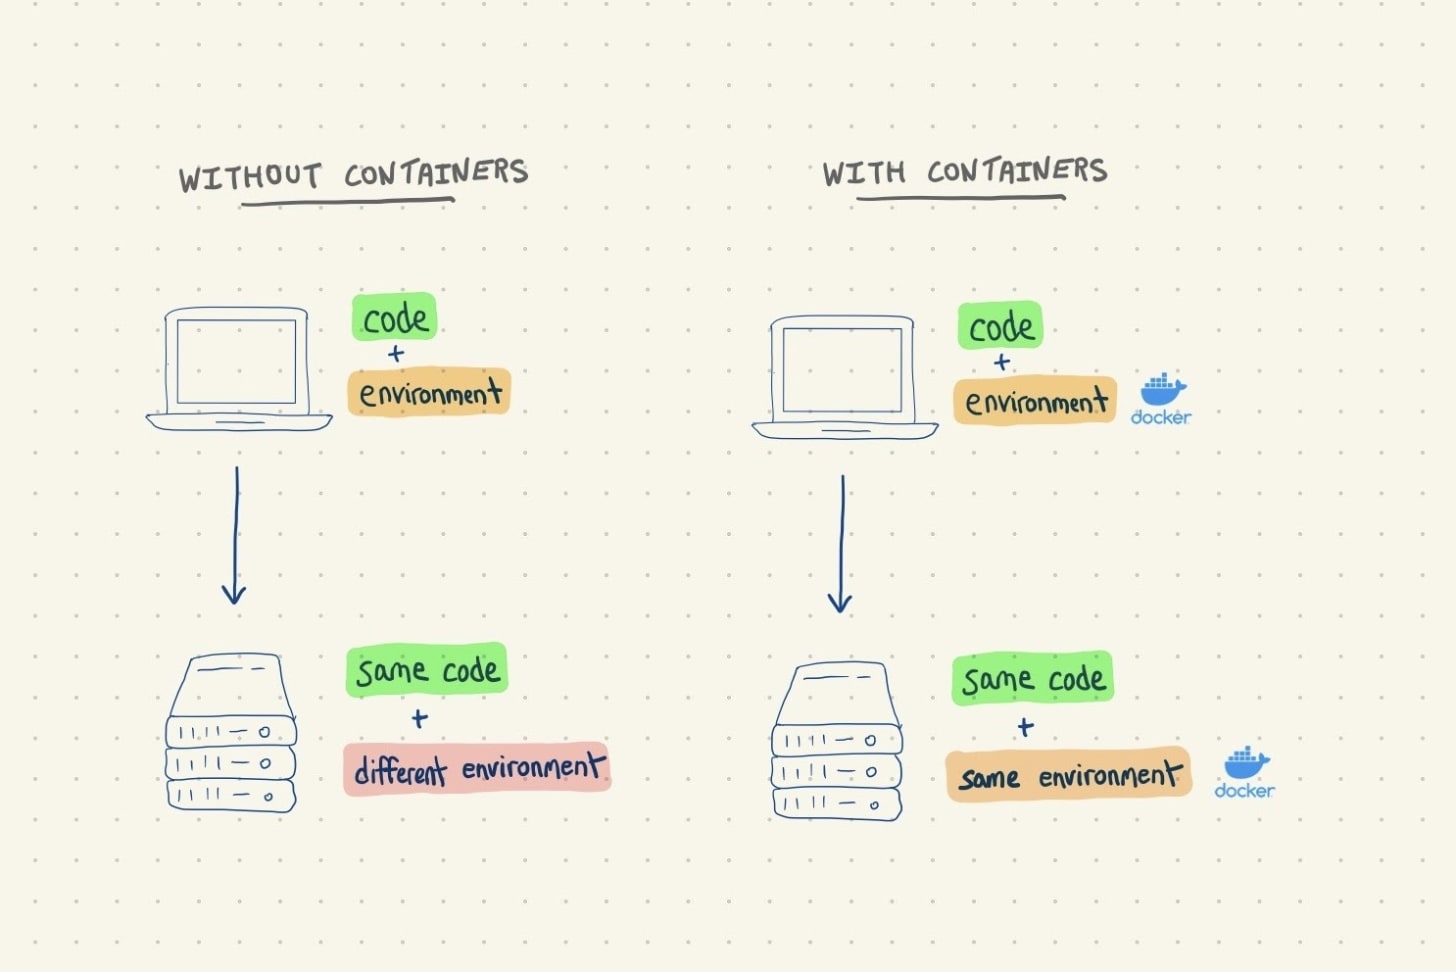 WITHOUT CONTAINERS
code
+
environment
same code
+
different environment
WITH CONTAINERS
code
+
environment
docker
same code
+
same environment
docker